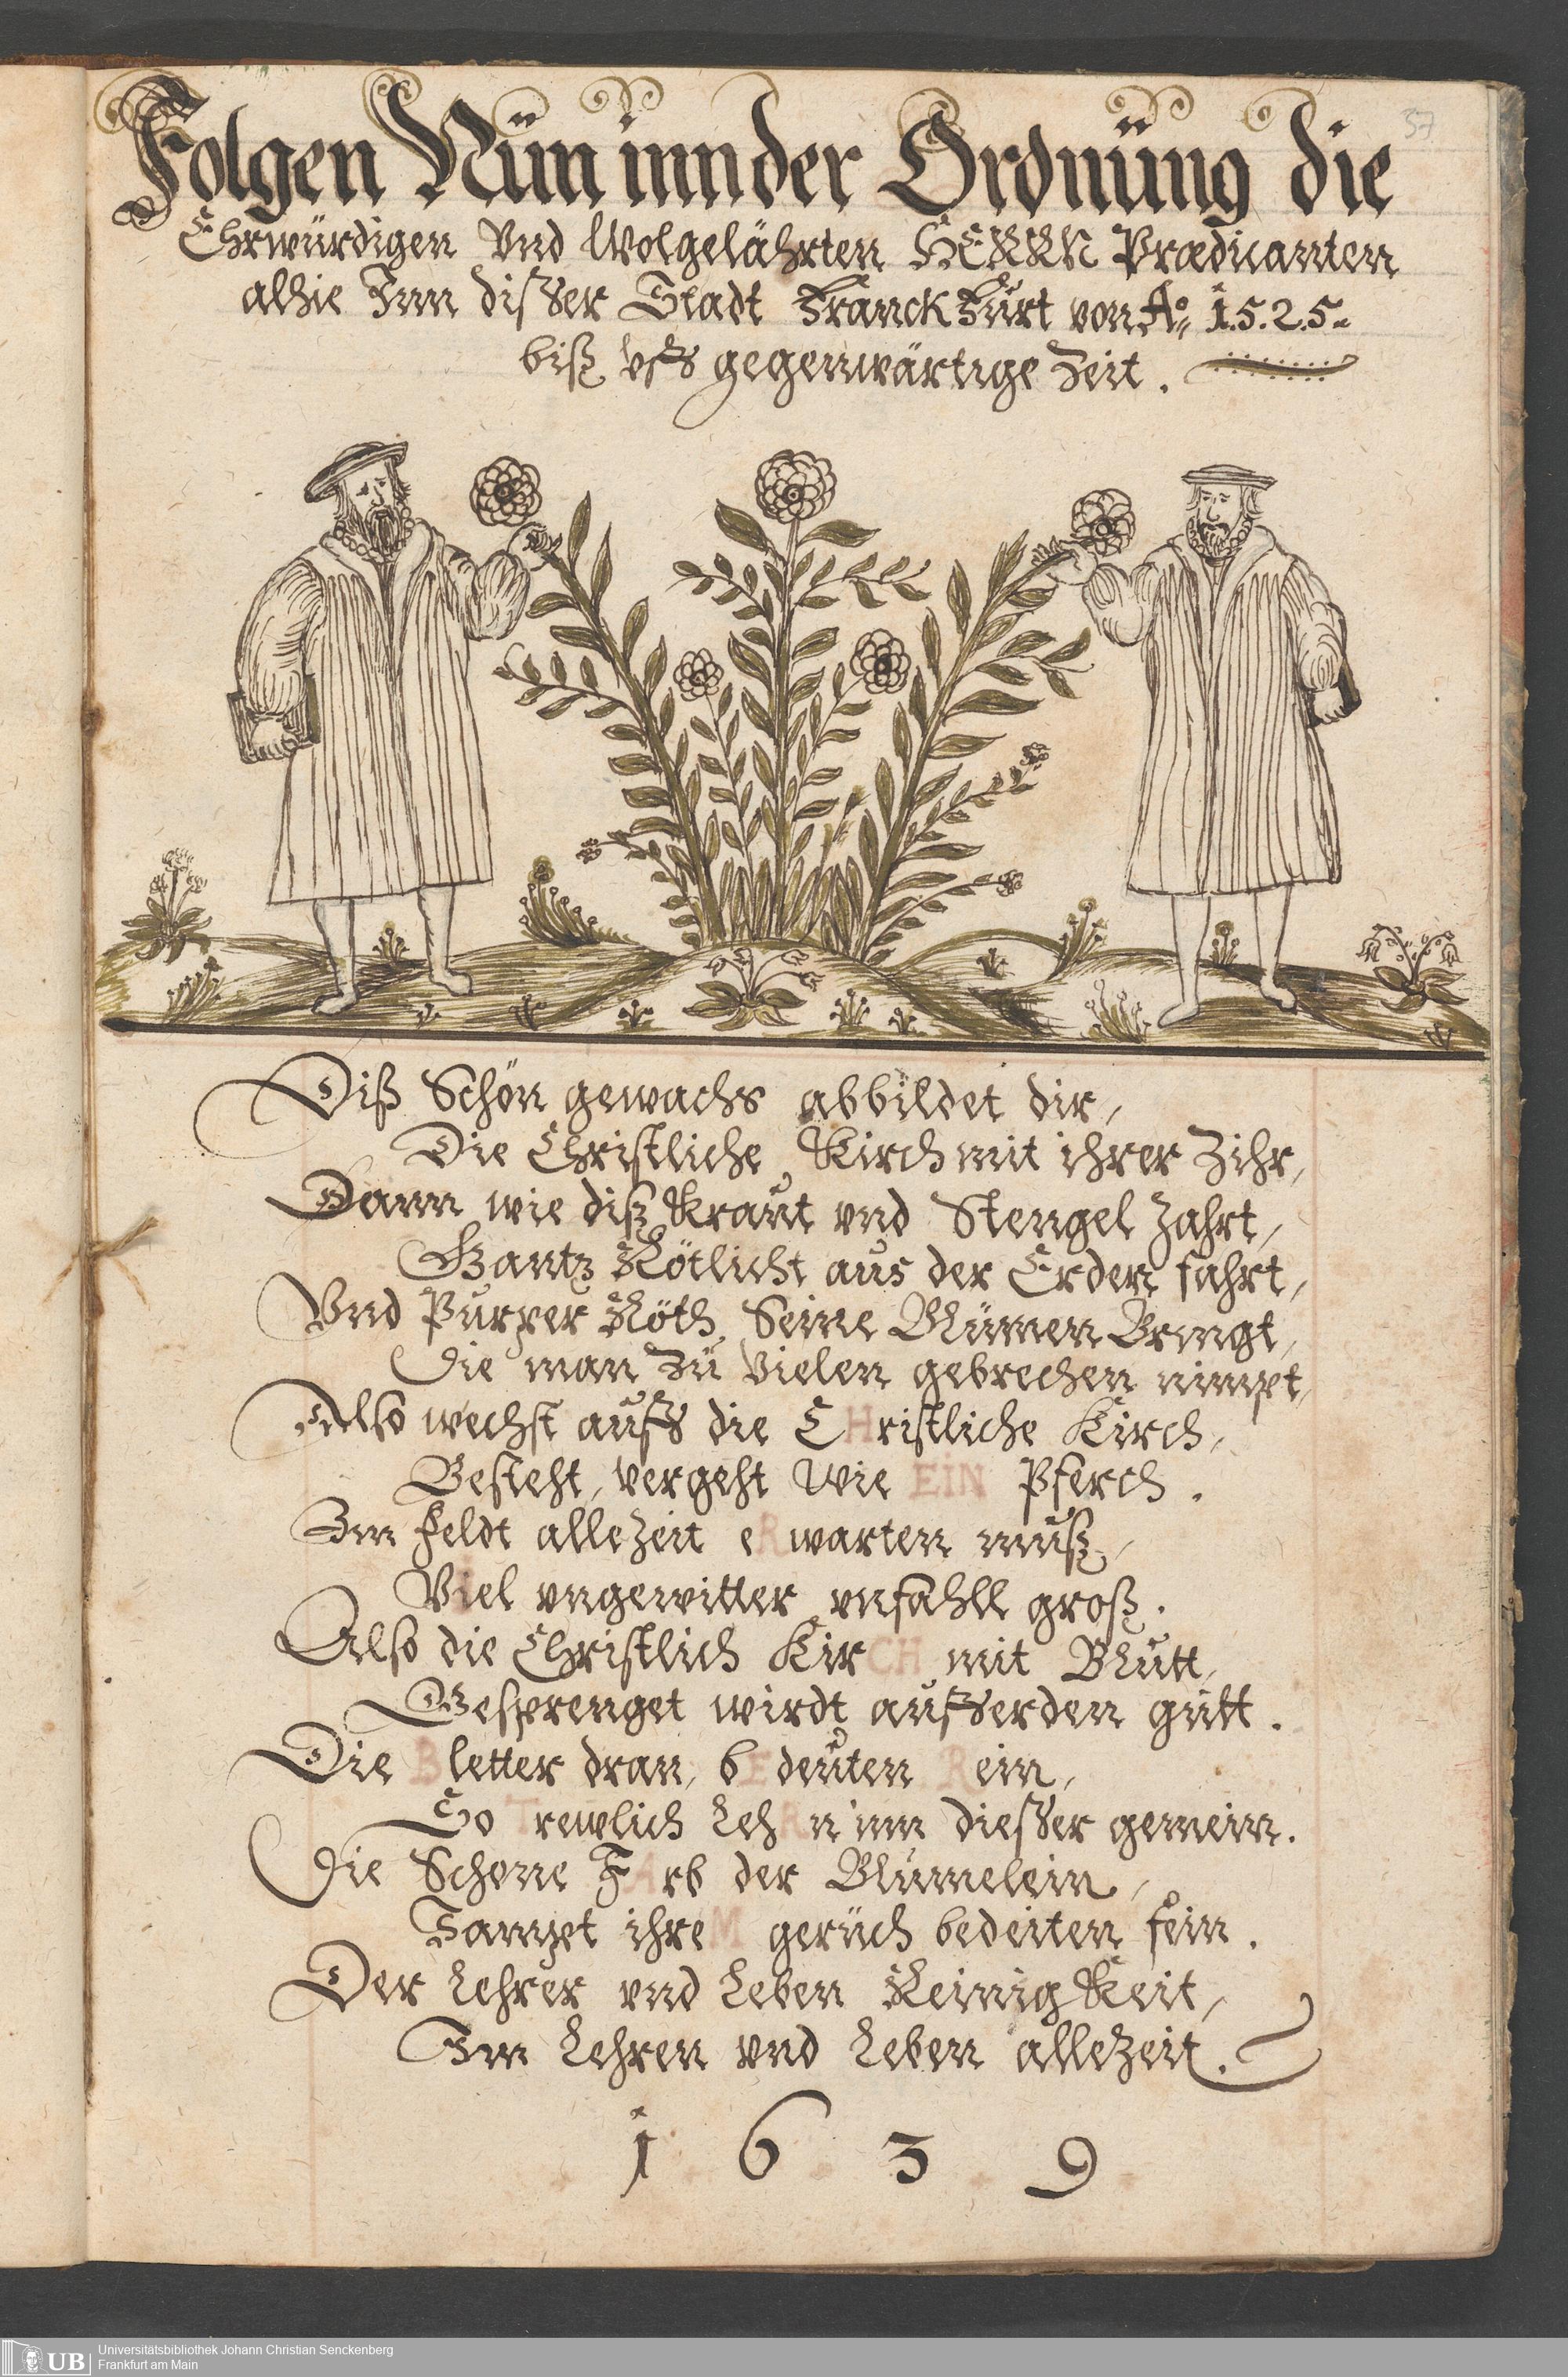 37
Folgen Nün inn der Ordnüng die
Ehrwürdigen Vnd Wolgelährten HERRN Prædicanten
alhie Inn disser Stadt Franckfürt von Aº 1.5.2.5.
biß vffs gegenwärtige Zeit.
Diß Schön gewachs abbildet dir,
Die Christliche Kirch mit ihrer Zihr,
Dann wie diß Kraut vnd Stengel zahrt,
Gantz Rötlicht aus der Erden fahrt,
Vnd Purper Röth, Seine Blumen Bringt,
Die man zü Vielen gebrechen nimpt,
Also wechst auffs die CHristliche Kirch,
Besteht, vergeht wie EiN Pferch.
Im Feldt allezeit eRwarten muß,
Viel vngewitter vnfahll groß.
Also die Christlich KirCH mit Blutt,
Gesprenget wirdt auff Erden gutt.
Die Bletter dran, bEdeuten Rein,
So Trewlich LehRn inn diesser gemein.
Die Schone FArb der Blumelein,
Sampt ihreM gerüch bedeiten fein.
Der Lehrer vnd Leben Reinigkeit,
Im Lehren vnd Leben allezeit.
1 6 3 9
UB Universitätsbibliothek Johann Christian Senckenberg
Frankfurt am Main